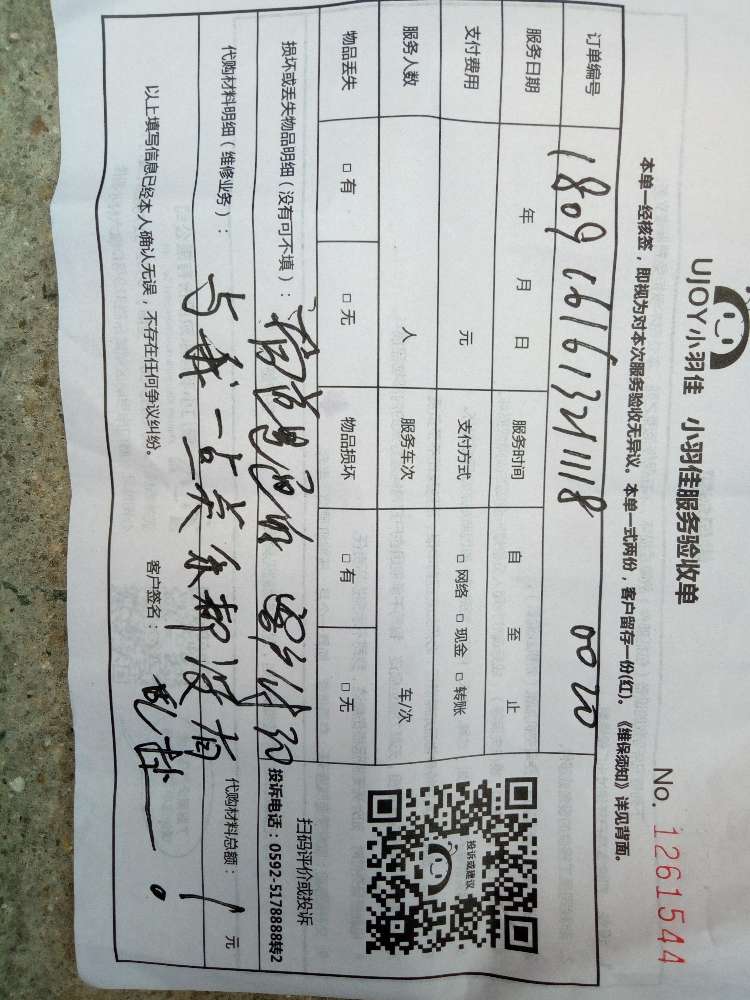 UJOY小羽佳 小羽佳服务验收单
No. 1261544
本单一经核签，即视为对本次服务验收无异议。本单一式两份，客户留存一份(红)。《维保须知》详见背面。
订单编号 180916161321118 0020
服务日期 年 月 日 服务时间 自 至 止
支付费用 元 支付方式 □ 网络 □ 现金 □ 转账
服务人数 人 服务车次 车/次
物品丢失 □ 有 □ 无 物品损坏 □ 有 □ 无
投诉或建议
扫码评价或投诉
投诉电话：0592-5178888转2
损坏或丢失物品明细（没有可不填）：
代购材料明细（维修业务）： 与我一点关系都没有
代购材料总额： 元
以上填写信息已经本人确认无误，不存在任何争议纠纷。 客户签名：